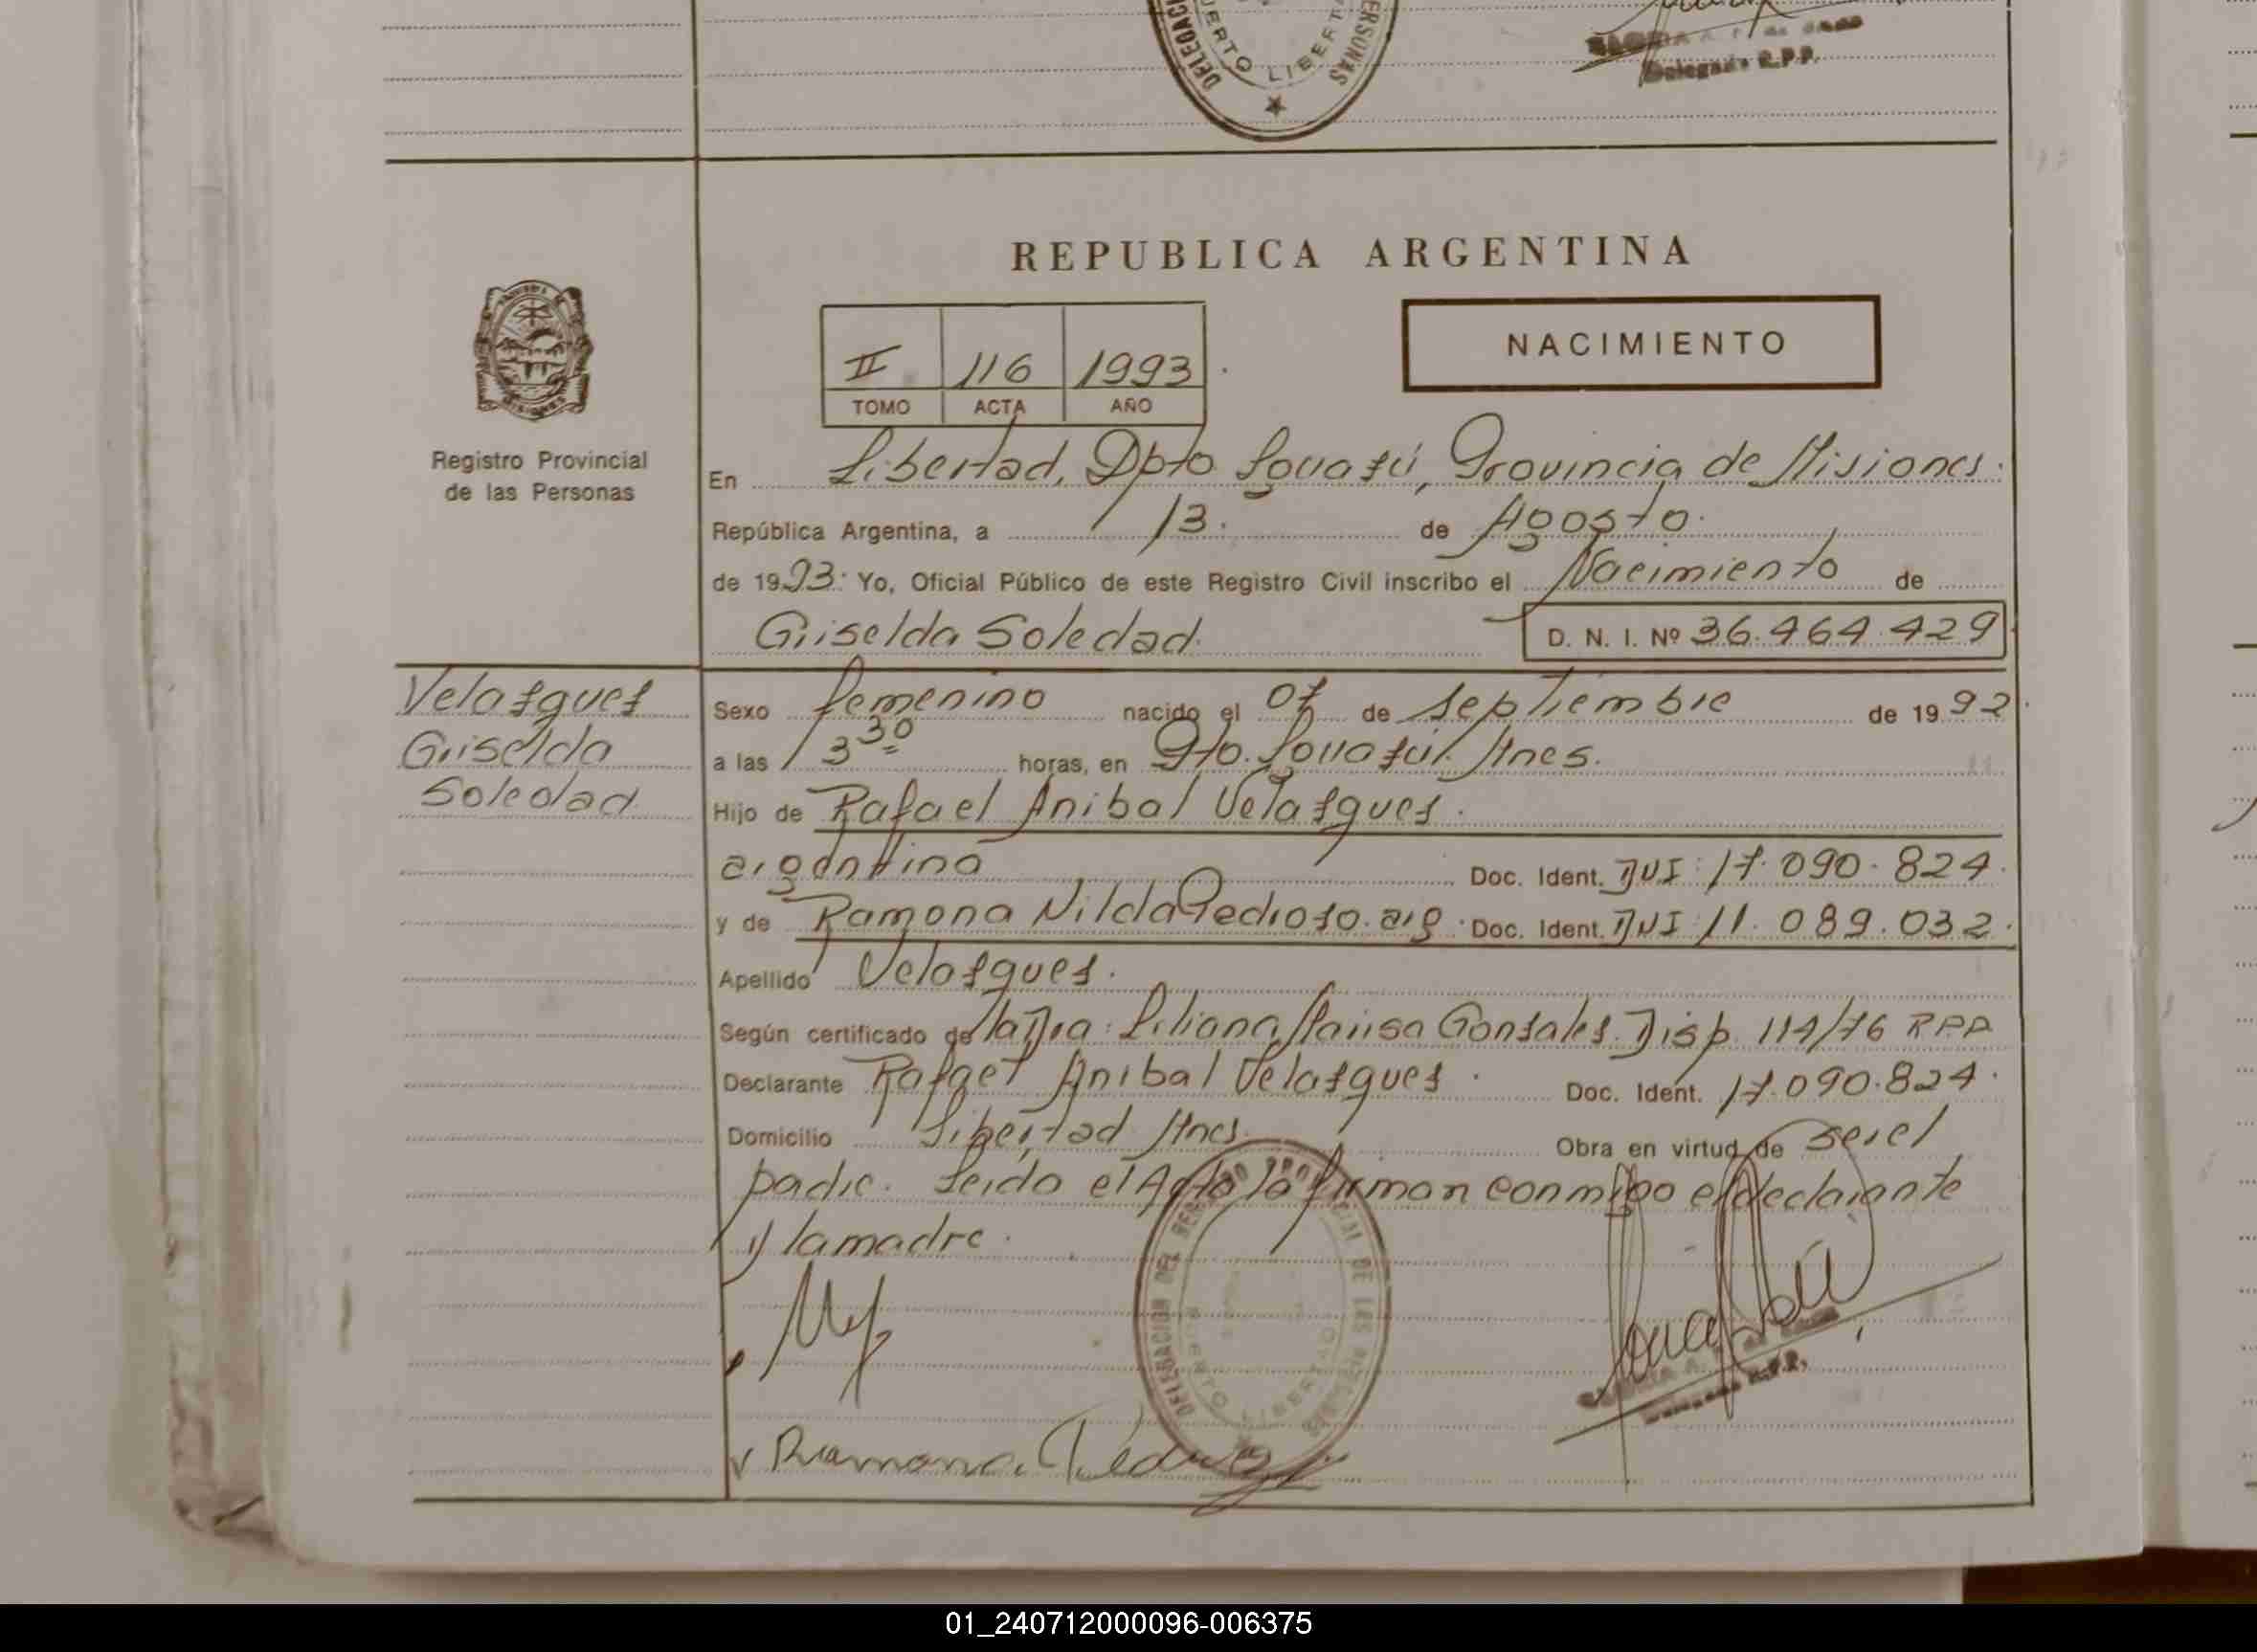 DELEGACI ERSONAS
UERTO LIBERT
Delegado R.P.P.
REPUBLICA ARGENTINA
II 116 1993
TOMO ACTA AÑO
NACIMIENTO
Registro Provincial
de las Personas
En Libertad, Dpto Iguazú, Provincia de Misiones.
República Argentina, a 13. de Agosto.
de 1993. Yo, Oficial Público de este Registro Civil inscribo el Nacimiento de
Griselda Soledad.
D. N. I. Nº 36.464.429
Velazquez
Griselda
Soledad
Sexo femenino nacido el 07 de septiembre de 1992.
a las 13 30 horas, en Pto. Iguazú. Mnes.
Hijo de Rafael Anibal Velazquez.
argentino Doc. Ident. DNI: 17.090.824.
y de Ramona Nilda Pedrozo. arg. Doc. Ident. DNI 11.089.032.
Apellido Velazquez.
Según certificado de la Dra: Liliana Marisa Gonzalez. Disp. 114/76 RPP
Declarante Rafael Anibal Velazquez. Doc. Ident. 17.090.824.
Domicilio Libertad Mnes. Obra en virtud de ser el
padre. Leida el Acta la firman conmigo el declarante
y la madre.
DELEGACION DEL REGISTRO PROVINCIAL DE LAS PERSONAS
PUERTO LIBERTAD
Ramona Pedrozo
01_240712000096-006375